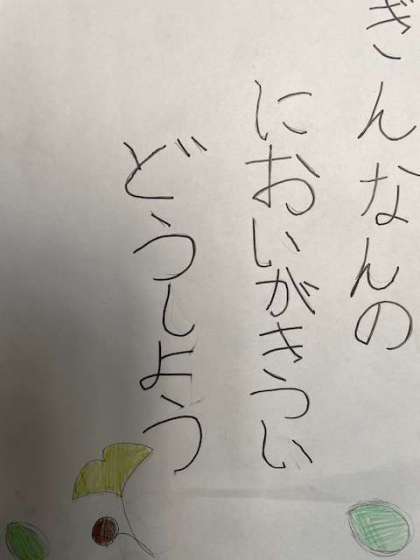 ぎんなんの
においがきつい
どうしよう